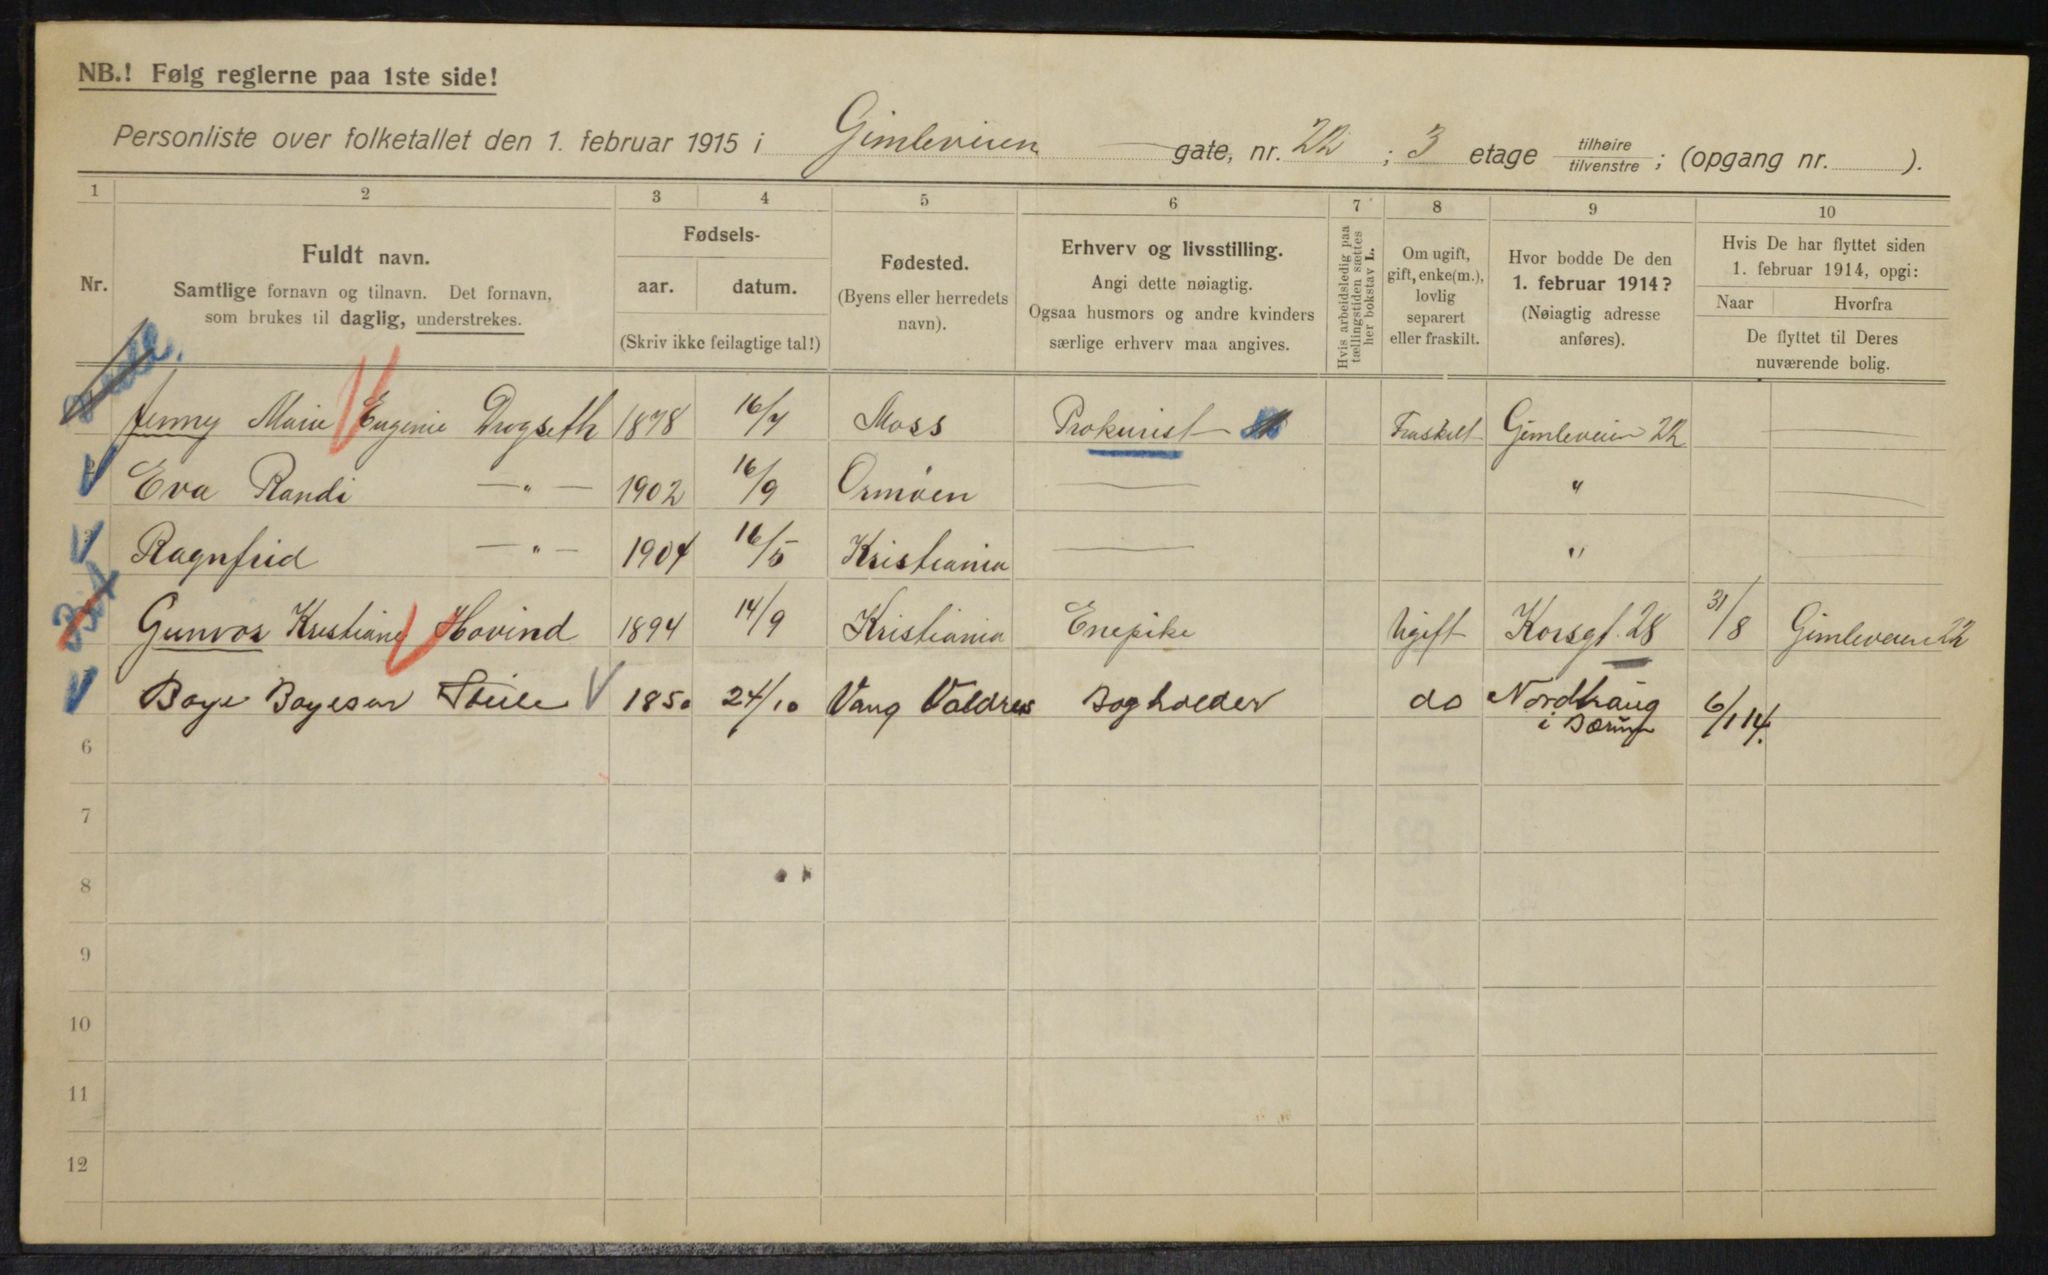 NB.! Følg reglerne paa 1ste side!
Personliste over folketallet den 1. februar 1915 i Gimleveien gate, nr. 22 ; 3 etage tilhøire / tilvenstre ; (opgang nr. ).
1 2 3 4 5 6 7 8 9 10
Nr.
Fuldt navn.
Samtlige fornavn og tilnavn. Det fornavn,
som brukes til daglig, understrekes.
Fødsels-
aar. datum.
(Skriv ikke feilagtige tal!)
Fødested.
(Byens eller herredets
navn).
Erhverv og livsstilling.
Angi dette nøiagtig.
Ogsaa husmors og andre kvinders
særlige erhverv maa angives.
Hvis arbeidsledig paa
tællingstiden sættes
her bokstav L.
Om ugift,
gift, enke(m.),
lovlig
separert
eller fraskilt.
Hvor bodde De den
1. februar 1914?
(Nøiagtig adresse
anføres).
Hvis De har flyttet siden
1. februar 1914, opgi:
Naar Hvorfra
De flyttet til Deres
nuværende bolig.
Jenny Marie Eugenie Drogseth 1878 16/7 Moss Prokurist Fraskilt Gimleveien 22
Eva Randi — " — 1902 16/9 Ormøen — "
Ragnfrid — " — 1904 16/5 Kristiania — "
Gunvor Kristiane Hovind 1894 14/9 Kristiania Enepike Ugift Korsgt. 28 31/8 Gimleveien 22
Boye Boyesen 1850 24/10 Vang Valdres Bogholder do Nordhaug
i Bærum 6/1 14.
6
7
8
9
10
11
12